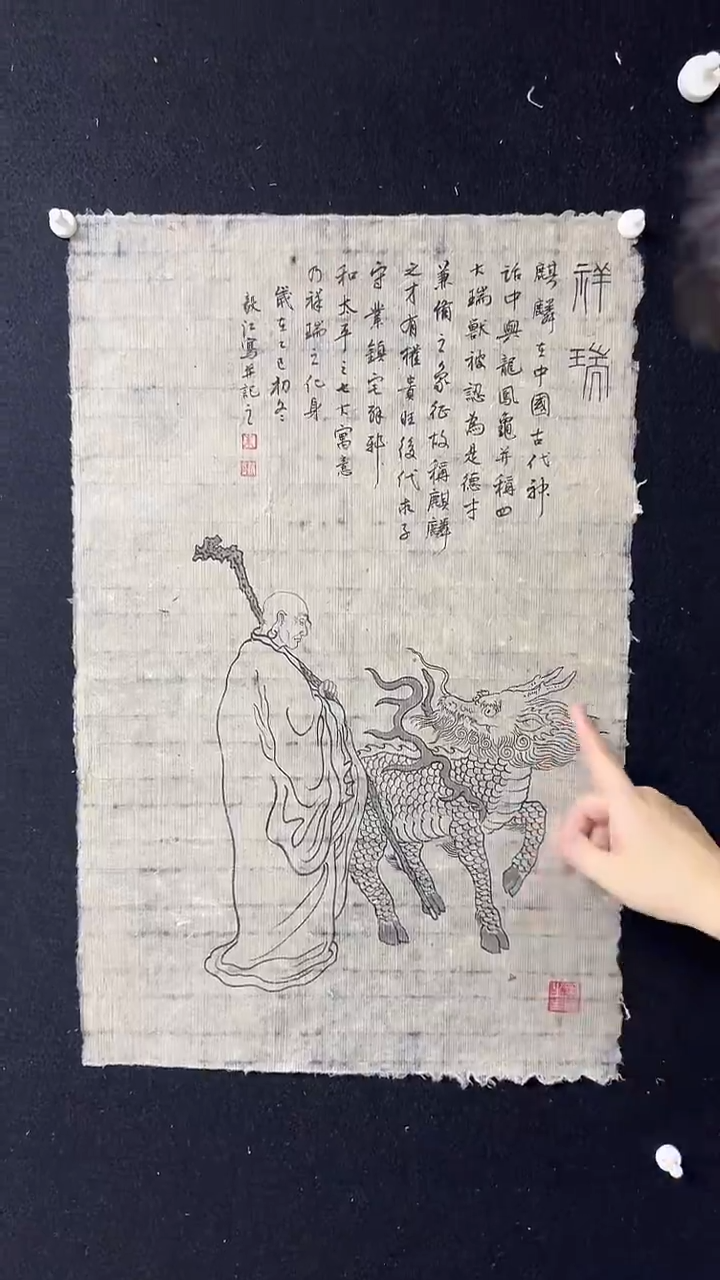 祥瑞
麒麟在中國古代神
話中與龍鳳龜并稱四
大瑞獸被認為是德才
兼備之象征故稱麒麟
之才有權貴旺後代求子
守業鎮宅辟邪
和太平之七大寓意
乃祥瑞之化身
歲在乙巳初冬
江寫并記之